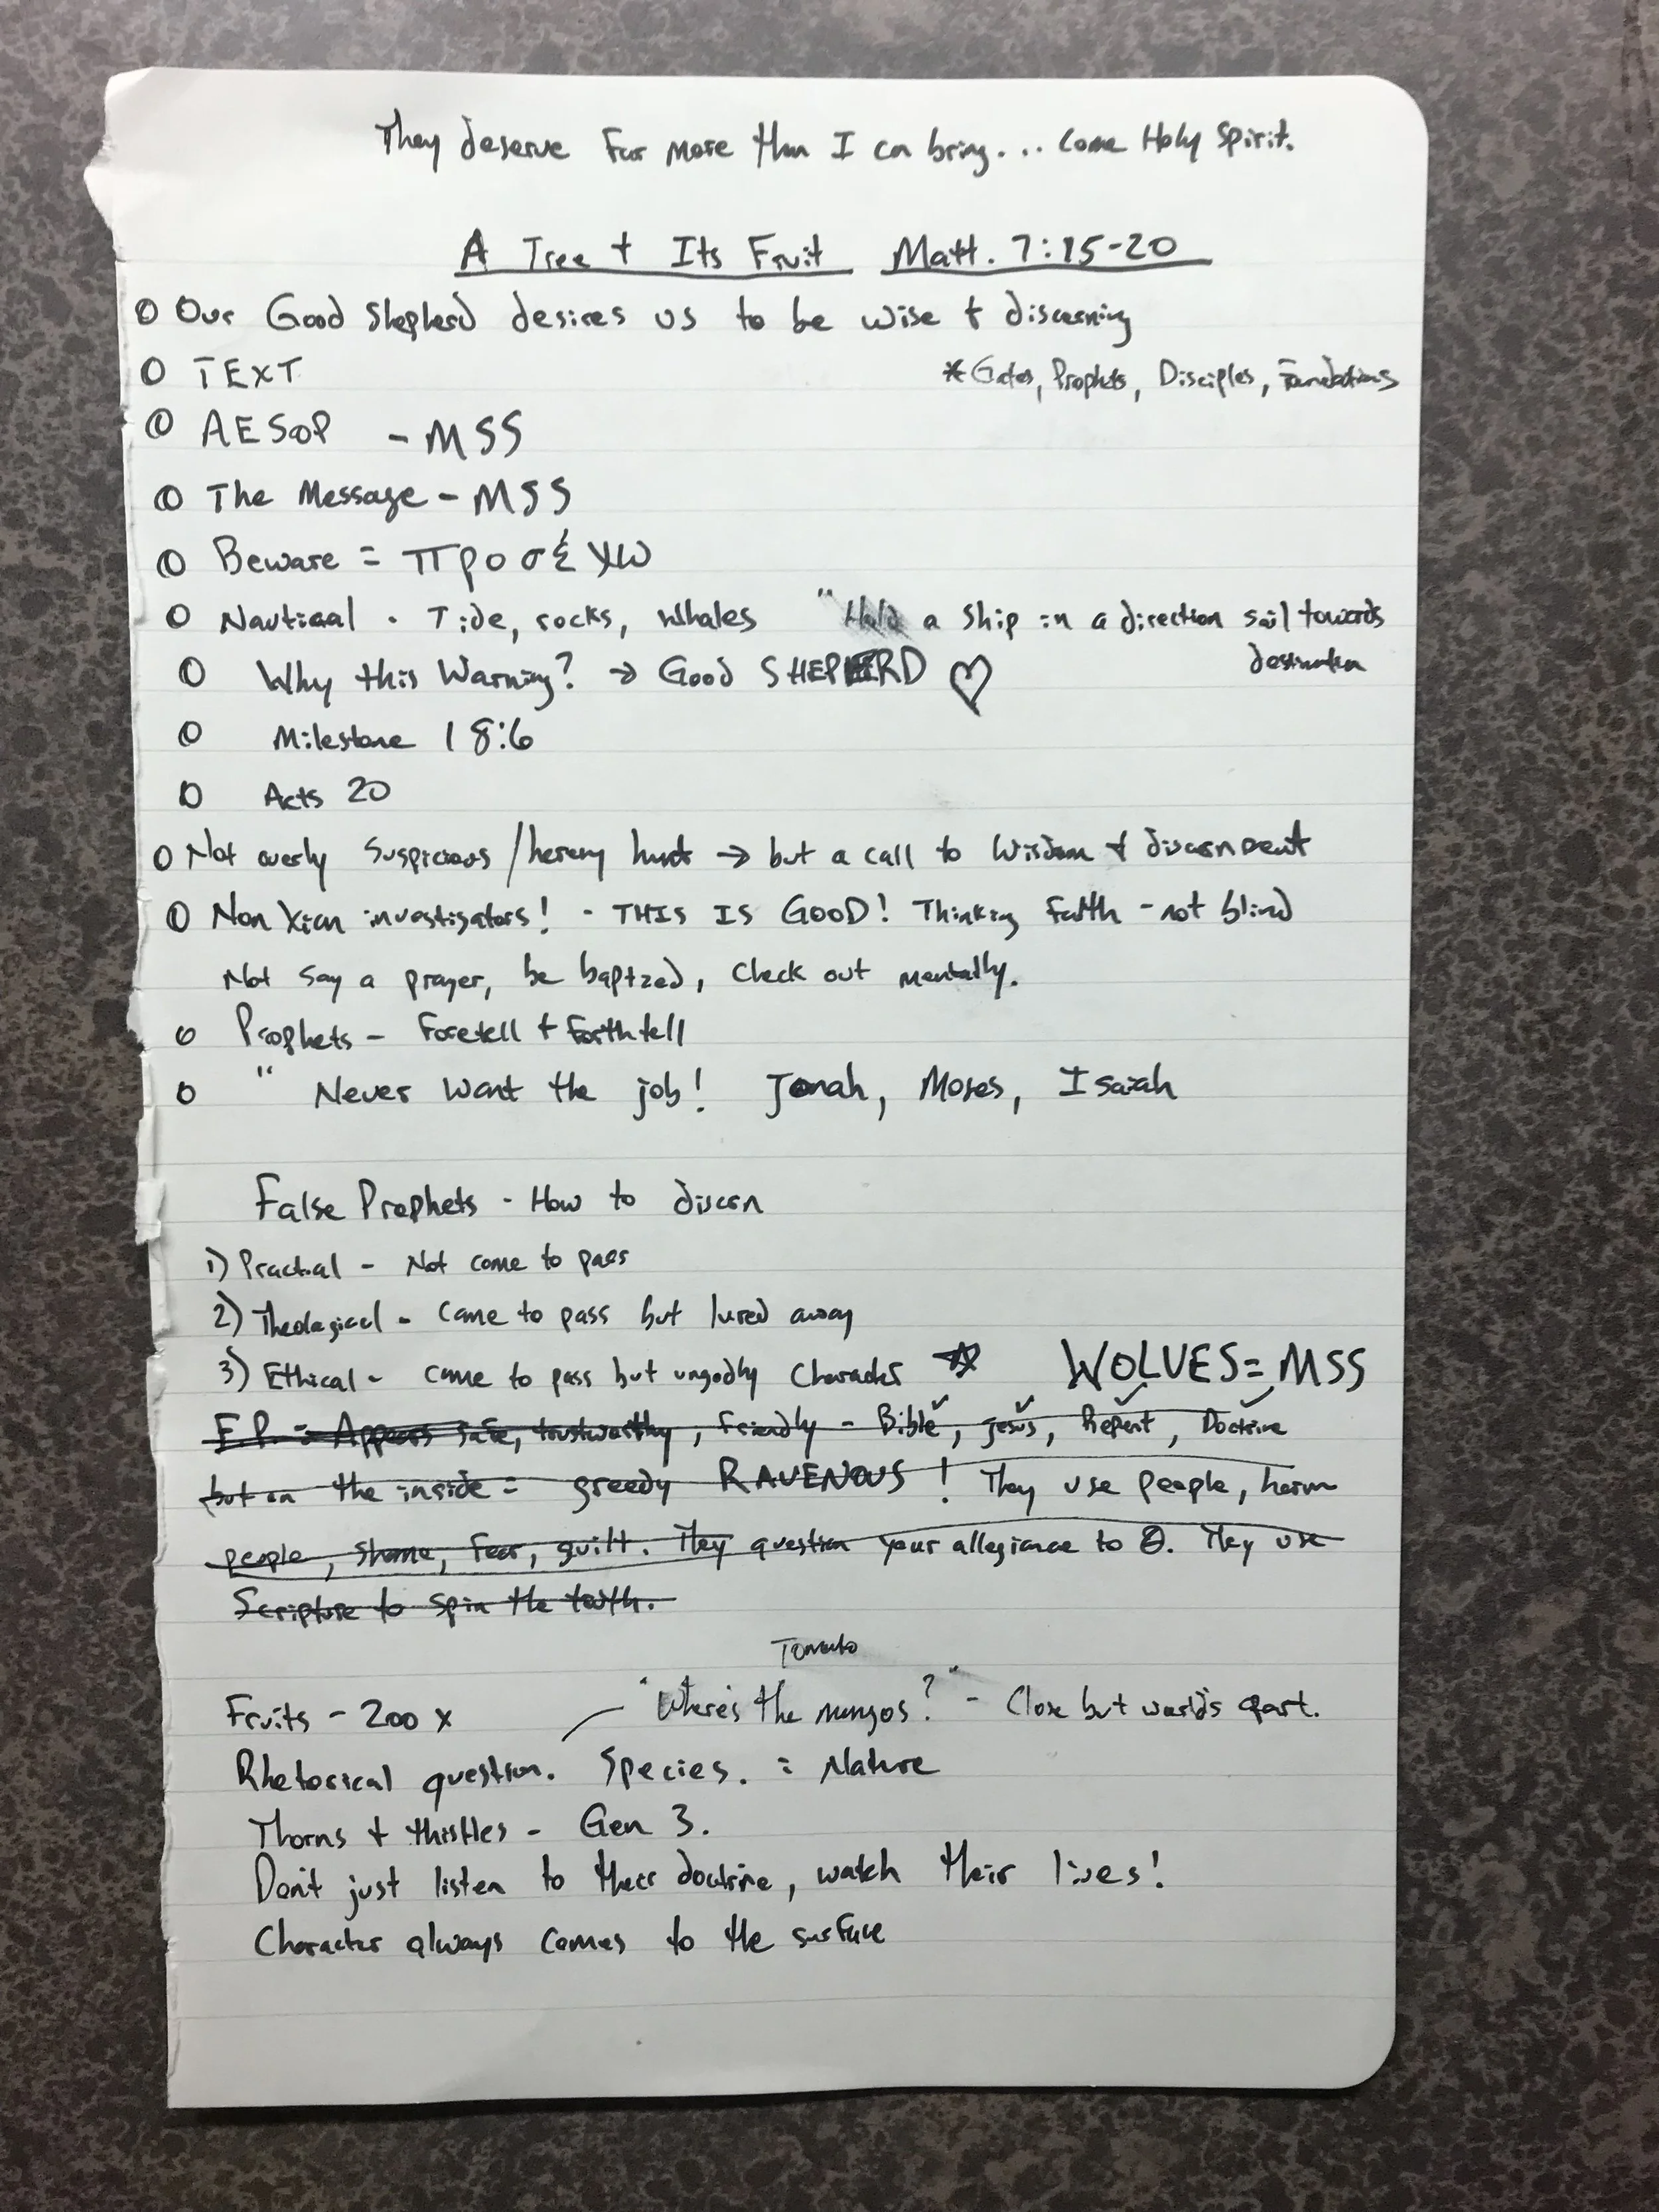 They deserve Far more than I can bring... Come Holy Spirit.
A Tree + Its Fruit Matt. 7:15-20
O Our Good Shepherd desires us to be wise + discerning
O TEXT *Gates, Prophets, Disciples, Foundations
O AESOP - MSS
O The Message - MSS
O Beware = προσέχω
O Nautical - Tide, rocks, whales "Hold a ship in a direction sail towards
destination
O Why this Warning? → Good SHEPHERD ♡
O Milestone 18:6
O Acts 20
O Not overly Suspicious/heresy hunt → but a call to Wisdom + discernment
O Non Xian investigators! - THIS IS GOOD! Thinking Faith - not blind
Not say a prayer, be baptzed, check out mentally.
O Prophets - Foretell + Forthtell
O " Never want the job! Jonah, Moses, Isaiah
False Prophets - How to discern
1) Practical - Not come to pass
2) Theological - Came to pass but lured away
3) Ethical - came to pass but ungodly Character ☆ WOLVES = MSS
F.P. = Appears safe, trustworthy, friendly - Bible✓, Jesus✓, Repent✓, Doctrine✓
but on the inside = greedy RAVENOUS! They use people, harm
people, shame, fear, guilt. They question your allegiance to Θ. They use
Scripture to spin the truth.
Tomato
Fruits - 200 x "Where's the mangos?" - Close but worlds apart.
Rhetorical question. Species. = Nature
Thorns + thistles - Gen 3.
Don't just listen to their doctrine, watch their lives!
Character always comes to the surface